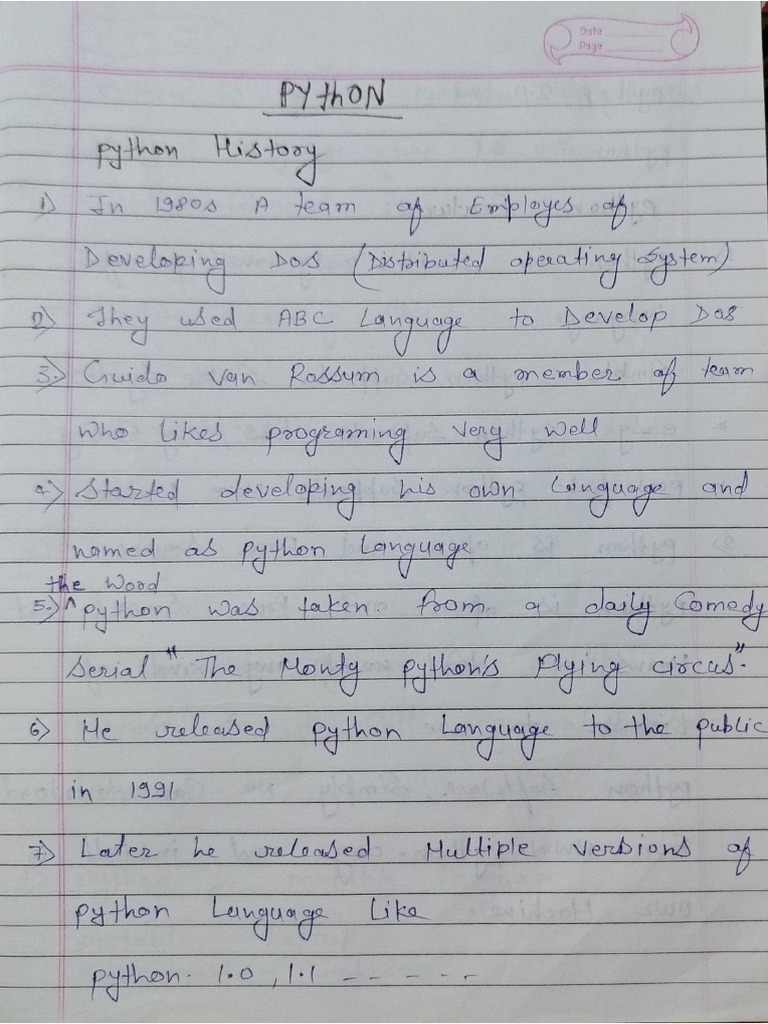 Date
Page
PYthON
python History
1) In 1980s A team of Employes of
Developing DOS (Distributed operating System)
2) They used ABC Language to Develop DOS
3.) Guido van Rossum is a member of team
who likes programing very well
4) Started developing his own Language and
named as python Language
the word
5.) ^ python was taken from a daily Comedy
Serial "The Monty python's Flying circus".
6) He released python Language to the public
in 1991
7) Later he released Multiple versions of
python Language Like
python. 1.0, 1.1 - - - - -